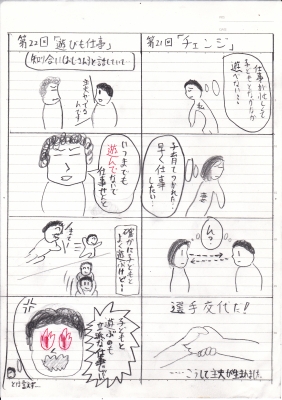 第21回「チェンジ」
仕事が忙しくて
子どもとなかなか
遊べない…
私
子育てつかれた…
早く仕事
したい…
妻
ん?
選手交代だ!
…こうして主夫が生まれました。
第22回「遊びも仕事」
知り合い(おじさん)と話していて…
主夫やってる
んです
いつまでも
遊んでないで
仕事せんと
確かに子どもと
よく遊ぶけど…
子どもと
遊ぶのも
立派な仕事じゃ